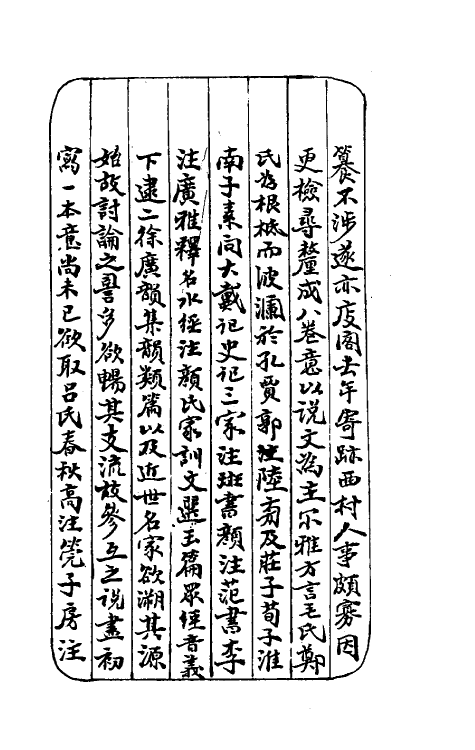 㸑不涉遂亦庋阁去年寄跡西村人事頗寡因
更檢尋釐成八卷意以説文為主尔雅方言毛氏鄭
氏為根柢而波瀾於孔賈郭注陸䟽及莊子荀子淮
南子素问大戴记史记三家注班書顔注范書李
注廣雅釋名水經注顔氏家訓文選玉篇眾經音義
下逮二徐廣韻集韻類篇以及近世名家欲溯其源
始故討論之語多欲暢其支流故參互之说盡初
寫一本意尚未已欲取吕氏春秋高注筦子房注